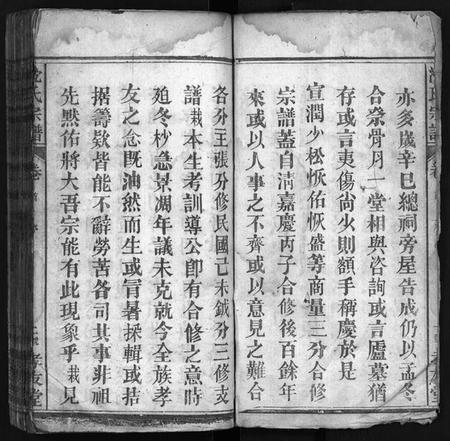 亦多歲辛巳總祠旁屋告成仍以孟冬
合宗骨月一堂相與咨詢或言廬墓猶
存或言夷傷尚少則額手稱慶於是
宣潤少松恢佑恢盛等商量三分合修
宗譜蓋自清嘉慶丙子合修後百餘年
來或以人事之不齊或以意見之難合
各分王張分修民國己未鉞分三修支
譜栽本生考訓導公即有合修之意時
廹冬杪急景凋年議未克就今全族孝
友之念既油然而生或冒暑採輯或拮
据籌欵皆能不辭勞苦各司其事非祖
先黙佑將大吾宗能有此現象乎栽見
氏宗譜
卷
孝友堂